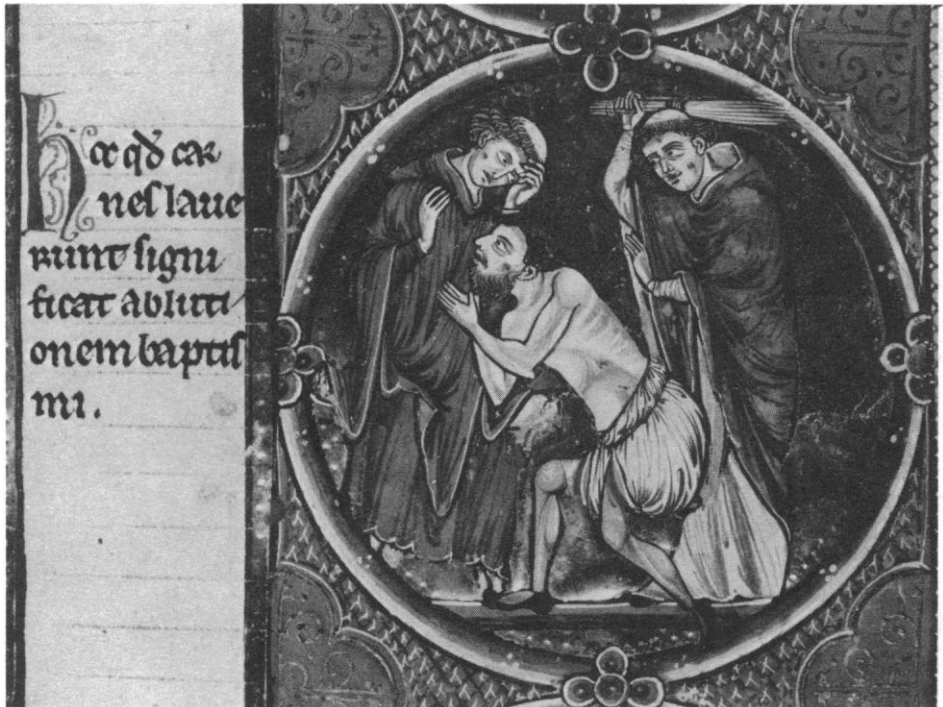 Hoc qđ car
nes laue
runt signi
ficat abluti
onem baptis
mi.